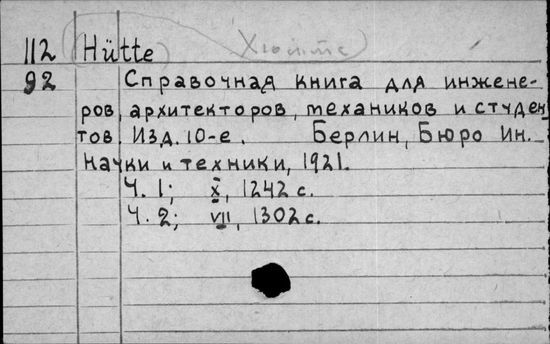 112 Hütte Хютте
92 Справочная книга для инжене-
ров, архитекторов, техаников и студен
тов. Изд. 10-е. Берлин, Бюро Ин.
Науки и техники, 1921.
Ч. 1; X, 1242 с.
Ч. 2; VII, 1302 с.